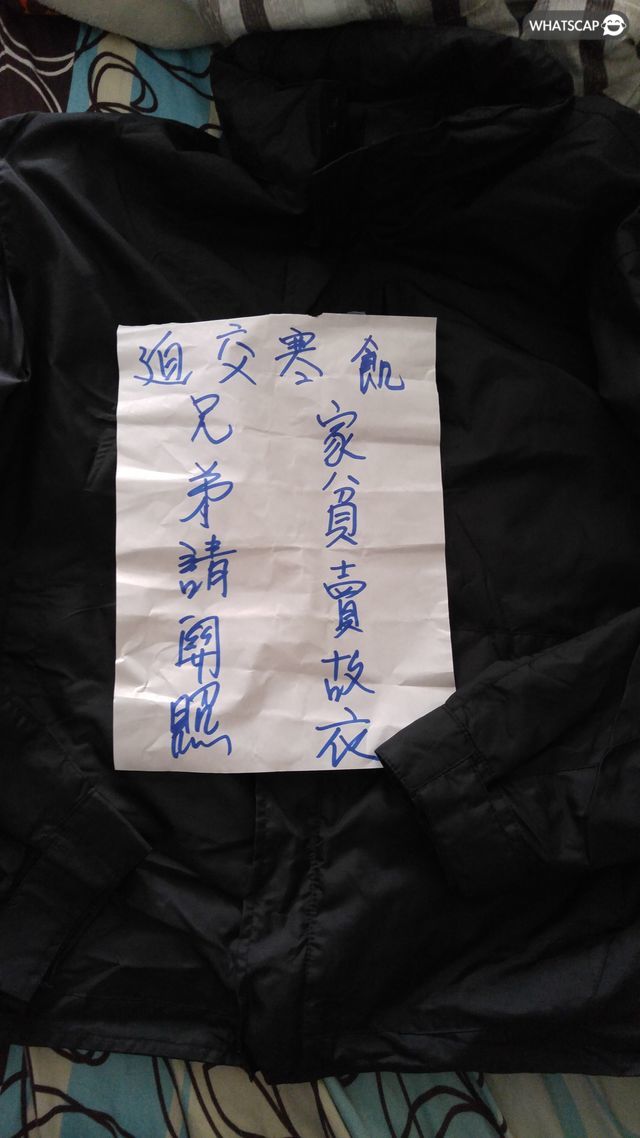 WHATSCAP
飢寒交迫
家貧賣故衣
兄弟請開照